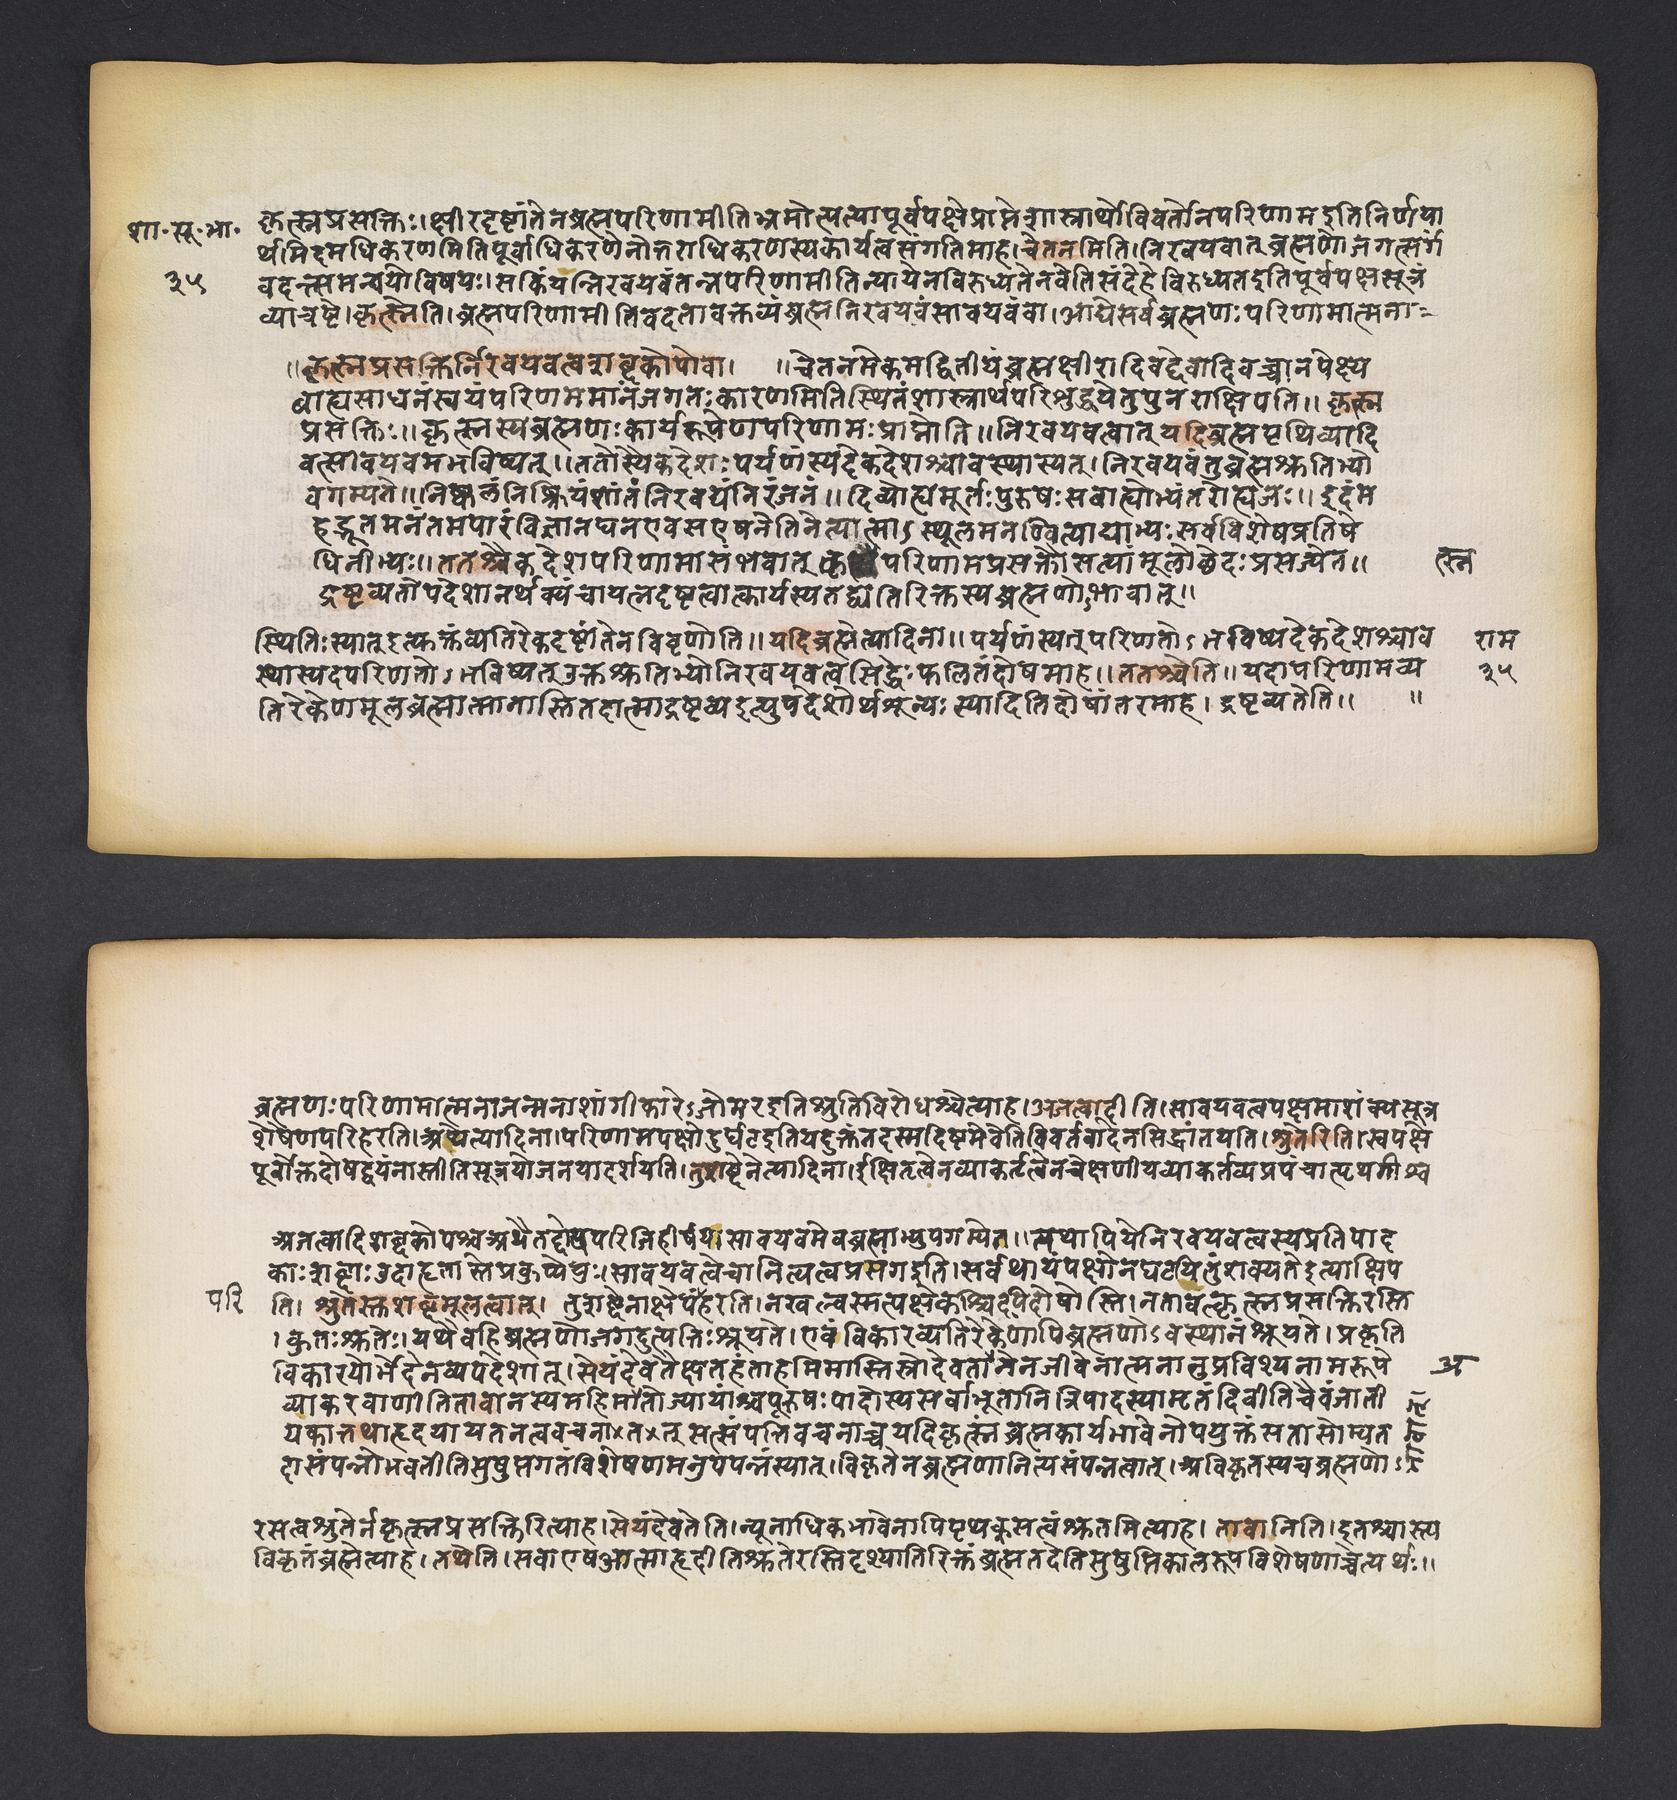 कृत्स्नप्रसक्तिः।क्षीरदृष्टांतेनब्रह्मपरिणामीतिभ्रमोत्पत्यापूर्वपक्षेप्राप्तेशास्त्रार्थोविवर्तोनपरिणामइतिनिर्णया
शा॰सू॰भा॰
र्थमिदमधिकरणमितिपूर्वाधिकरणेनोत्तराधिकरणस्यकार्यत्वसंगतिमाह।चेतनमिति।निरवयवात्ब्रह्मणोजगत्सर्गं
३५
वदन्समन्वयोविषयः।सकिंयन्निरवयवंतन्नपरिणामीतिन्यायेनविरुध्यतेनवेतिसंदेहेविरुध्यतइतिपूर्वपक्षसूत्रं
व्याचष्टे।कृत्स्नेति।ब्रह्मपरिणामीतिवदतावक्तव्यंब्रह्मनिरवयवंसावयवंवा।आद्येसर्वब्रह्मणःपरिणामात्मना
॥कृत्स्नप्रसक्तिर्निरवयवत्वशब्दकोपोवा। ॥चेतनमेकमद्वितीयंब्रह्मक्षीरादिवद्देवादिवच्चानपेक्ष्य
बाह्यसाधनंस्वयंपरिणममानंजगतःकारणमितिस्थितंशास्त्रार्थपरिशुद्धयेतुपुनराक्षिपति॥कृत्स्न
प्रसक्तिः॥कृत्स्नस्यब्रह्मणःकार्यरूपेणपरिणामःप्राप्नोति॥निरवयवत्वात्यदिब्रह्मपृथिव्यादि
वत्सावयवमभविष्यत्॥ततोस्यैकदेशःपर्यणंस्यदेकदेशश्चावस्थास्यत्।निरवयवंतुब्रह्मश्रुतिभ्यो
वगम्यते॥निष्कलंनिष्क्रियंशांतंनिरवद्यंनिरंजनं॥दिव्योह्यमूर्तःपुरुषःसबाह्योभ्यंतरोह्यजः॥इदंम
हद्भूतमनंतमपारंविज्ञानघनएवसएषनेतिनेत्यात्माऽस्थूलमनण्वित्याद्याभ्यःसर्वविशेषप्रतिषे
धिनीभ्यः॥ततश्चैकदेशपरिणामासंभवात्कृ परिणामप्रसक्तौसत्यांमूलोछेदःप्रसज्येत॥
त्स्न
द्रष्टव्यतोपदेशानर्थक्यंचायत्नदृष्टत्वात्कार्यस्यतद्व्यतिरिक्तस्यब्रह्मणोऽभावात्॥
स्थितिःस्यात्इत्युक्तंव्यतिरेकदृष्टांतेनविवृणोति॥यदिब्रह्मेत्यादिना॥पर्यणंस्यत्परिणतोऽभविष्यदेकदेशश्चाव
राम
स्थास्यदपरिणतोऽभविष्यत्उक्तश्रुतिभ्योनिरवयवत्वसिद्धेःफलितंदोषमाह॥ततश्चेति॥यदापरिणामव्य
३५
तिरेकेणमूलब्रह्मात्मानास्तितदात्माद्रष्टव्यइत्युपदेशोर्थशून्यःस्यादितिदोषांतरमाह।द्रष्टव्यतेति॥ ॥
ब्रह्मणःपरिणामात्मनाजन्मनाशांगीकारेऽजोमरइतिश्रुतिविरोधश्चेत्याह।अजत्वादीति।सावयवत्वपक्षमाशंक्यसूत्र
शेषेणपरिहरति।अथेत्यादिना।परिणामपक्षोदुर्घटइतियदुक्तंतदस्मदिष्टमेवेतिविवर्तवादेनसिद्धांतयति।श्रुतेरिति।स्वपक्षे
पूर्वोक्तदोषद्वयंनास्तीतिसूत्रयोजनयादर्शयति।तुशब्देनेत्यादिना।ईक्षितृत्वेनव्याकर्तृत्वेनचेक्षणीयव्याकर्तव्यप्रपंचात्पृथगीश्व
अजत्वादिशब्दकोपश्चअथैतद्दोषपरिजिहीर्षयासावयवमेवब्रह्माभ्युपगम्येत॥तथापियेनिरवयवत्वस्यप्रतिपाद
काःशब्दाःउदाहृतास्तेप्रकुप्येयुः।सावयवत्वेचानित्यत्वप्रसंगइति।सर्वथायंपक्षोनघटयितुंशक्यतेइत्याक्षिप
परि
ति।श्रुतेस्तुशब्दमूलत्वात्।तुशब्देनाक्षेपंहरति।नखल्वस्मत्पक्षेकश्चिदपिदोषोस्ति।नतावत्कृत्स्नप्रसक्तिरस्ति
।कुतःश्रुतेः।यथैवहिब्रह्मणोजगदुत्पत्तिःश्रूयते।एवंविकारव्यतिरेकेणापिब्रह्मणोऽवस्थानंश्रूयते।प्रकृति
विकारयोर्भेदेनव्यपदेशात्।सेयंदेवतैक्षतहंताहमिमास्तिस्रोदेवतानेनजीवेनात्मनानुप्रविश्यनामरूपे
अ
व्याकरवाणीतितावानस्यमहिमातोज्यायांश्चपूरुषःपादोस्यसर्वाभूतानित्रिपादस्यामृतंदिवीतिचैवंजाती
यकात्तथाहृदयायतनत्ववचना×त×त्सत्संपत्तिवचनाच्चयदिकृत्स्नंब्रह्मकार्यभावेनोपयुक्तंसतासोम्यत
दासंपन्नोभवतीतिसुषुप्तगतंविशेषणमनुपपन्नंस्यात्।विकृतेनब्रह्मणानित्यसंपन्नत्वात्।अविकृतस्यचब्रह्मणो
रसत्वश्रुतेर्नकृत्स्नप्रसक्तिरित्याह।सेयंदेवतेति।न्यूनाधिकभावेनापिपृथक्सत्वंश्रुतमित्याह।तावानिति।इतश्चास्त्य
विकृतंब्रह्मेत्याह।तथेति।सवाएषआत्माहृदीतिश्रुतेरस्तिदृश्यातिरिक्तंब्रह्मतदेतिसुषुप्तिकालरूपविशेषणाच्चेत्यर्थः॥